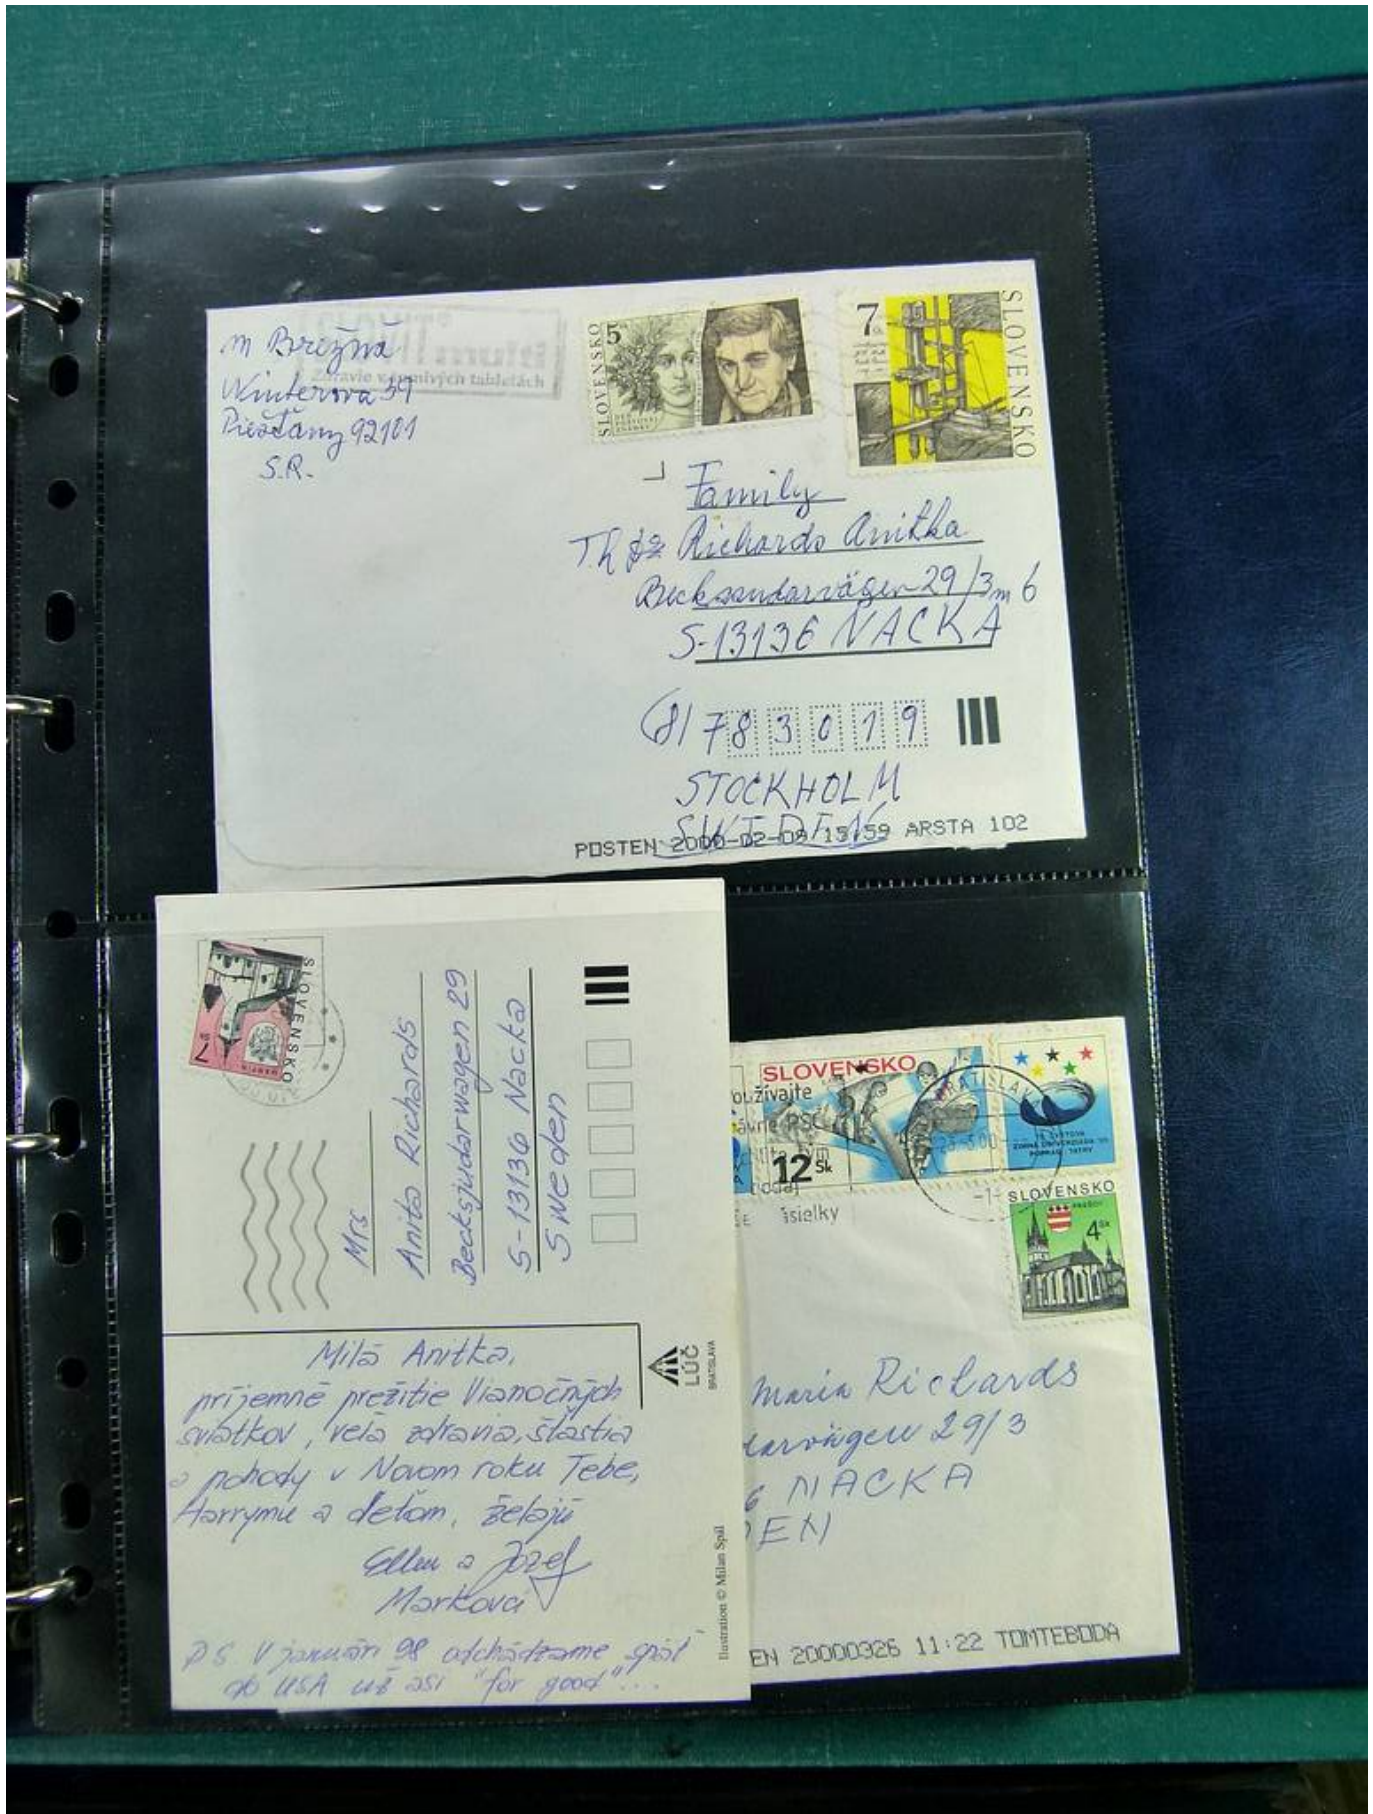 M Brežná
Winterova 39
Piešťany 92101
S.R.
Zdravie v šumivých tabletách
SLOVENSKO
5
7
SLOVENSKO
Family
Richards Anitka
29/3
S-13136 NACKA
(8) 783019
STOCKHOLM
SWEDEN
POSTEN 2000-02-09 15:59 ARSTA 102
SLOVENSKO
7 Sk
MARTIN
Mrs
Anita Richards
Becksjudarwagen 29
S-13136 Nacka
Sweden
LÚČ
BRATISLAVA
Milá Anitka,
príjemné prežitie Vianočných
sviatkov, veľa zdravia, šťastia
a pohody v Novom roku Tebe,
Harrymu a deťom, želajú
Ellen a Jozef
Markovi
P.S. V januári 98 odchádzame späť
do USA už asi "for good"...
Ilustration © Milan Spál
SLOVENSKO
12 Sk
oužívajte
PSČ
ásielky
BRATISLAVA
19. SVETOVÁ
ZIMNÁ UNIVERZIÁDA '99
POPRAD - TATRY
-1-
SLOVENSKO
PREŠOV
4 Sk
Maria Richards
darvägen 29/3
6 NACKA
DEN
EN 20000326 11:22 TOMTEBODA